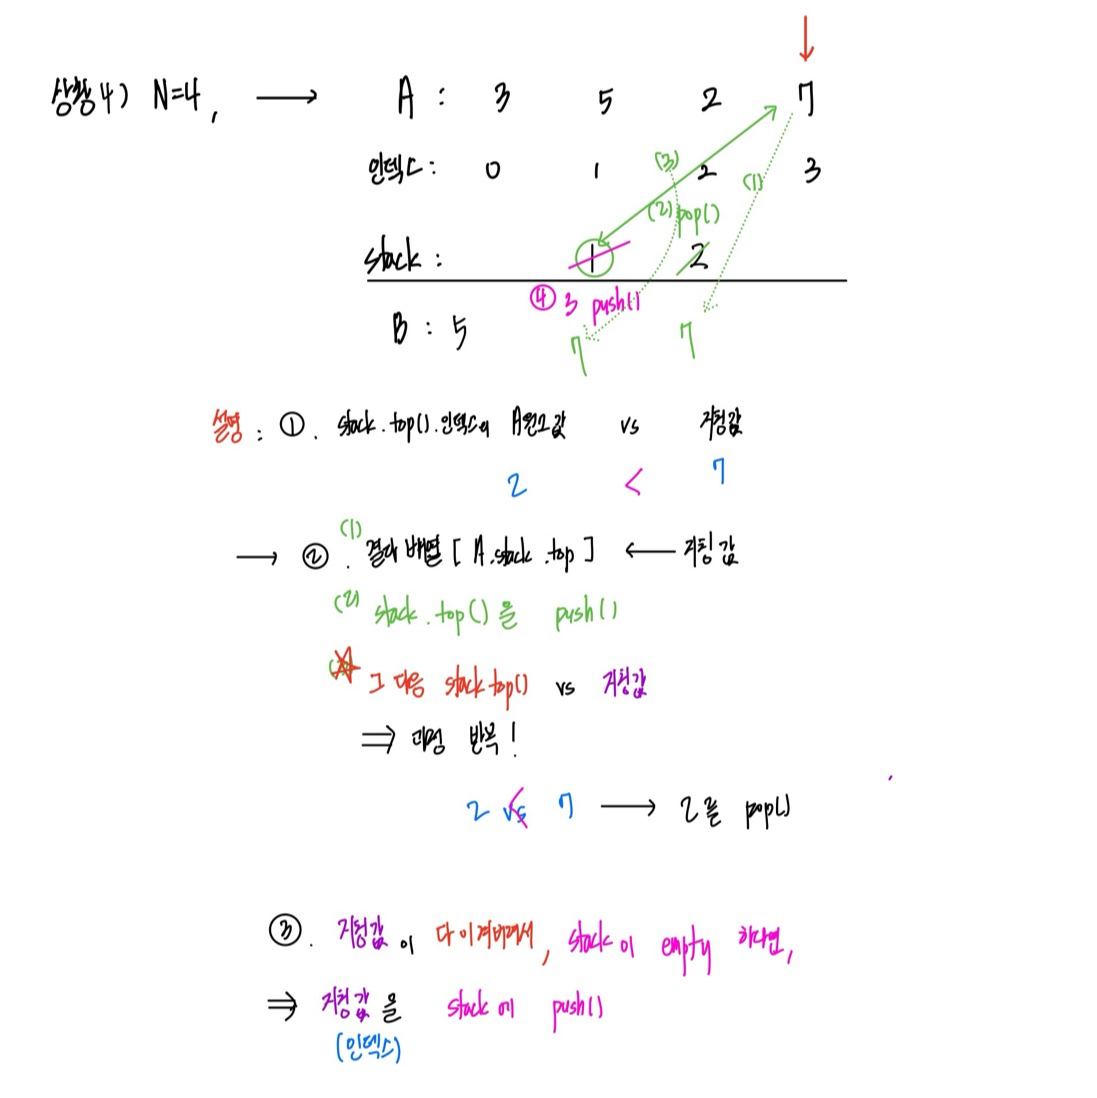 상황4) N=4, → A : 3 5 2 7
인덱스: 0 1 2 3
(3) (1)
(2) pop()
stack : 1 2
④ 3 push()
B : 5 7 7
설명 : ①. stack.top().인덱스의 A원소값 vs 지칭값
2 < 7
→ ②. (1) 결과 배열 [ A.stack.top ] ← 지칭값
(2) stack.top()을 push()
그 다음 stack top() vs 지칭값
⇒ 과정 반복!
2 vs 7 → 2를 pop()
③. 지칭값이 다 이겨버려서, stack이 empty 하다면,
⇒ 지칭값을 stack에 push()
(인덱스)